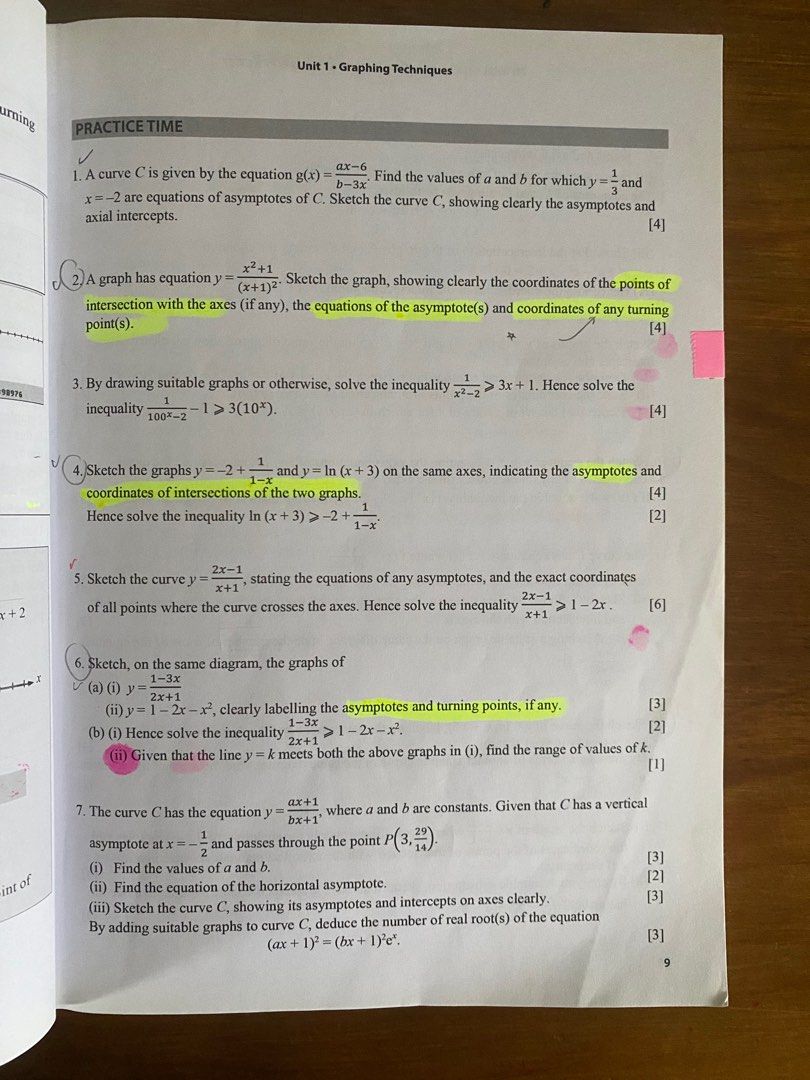 urning
98976
x + 2
x
int of
Unit 1 • Graphing Techniques
PRACTICE TIME
1. A curve C is given by the equation g(x) = \frac{ax−6}{b−3x}. Find the values of a and b for which y = \frac{1}{3} and
x = −2 are equations of asymptotes of C. Sketch the curve C, showing clearly the asymptotes and
axial intercepts. [4]
2. A graph has equation y = \frac{x²+1}{(x+1)²}. Sketch the graph, showing clearly the coordinates of the points of
intersection with the axes (if any), the equations of the asymptote(s) and coordinates of any turning
point(s). [4]
3. By drawing suitable graphs or otherwise, solve the inequality \frac{1}{x²−2} ⩾ 3x + 1. Hence solve the
inequality \frac{1}{100ˣ−2} − 1 ⩾ 3(10ˣ). [4]
4. Sketch the graphs y = −2 + \frac{1}{1−x} and y = ln (x + 3) on the same axes, indicating the asymptotes and
coordinates of intersections of the two graphs. [4]
Hence solve the inequality ln (x + 3) ⩾ −2 + \frac{1}{1−x}. [2]
5. Sketch the curve y = \frac{2x−1}{x+1}, stating the equations of any asymptotes, and the exact coordinates
of all points where the curve crosses the axes. Hence solve the inequality \frac{2x−1}{x+1} ⩾ 1 − 2x. [6]
6. Sketch, on the same diagram, the graphs of
(a) (i) y = \frac{1−3x}{2x+1}
(ii) y = 1 − 2x − x², clearly labelling the asymptotes and turning points, if any. [3]
(b) (i) Hence solve the inequality \frac{1−3x}{2x+1} ⩾ 1 − 2x − x². [2]
(ii) Given that the line y = k meets both the above graphs in (i), find the range of values of k.
[1]
7. The curve C has the equation y = \frac{ax+1}{bx+1}, where a and b are constants. Given that C has a vertical
asymptote at x = −\frac{1}{2} and passes through the point P(3, \frac{29}{14}).
(i) Find the values of a and b. [3]
(ii) Find the equation of the horizontal asymptote. [2]
(iii) Sketch the curve C, showing its asymptotes and intercepts on axes clearly. [3]
By adding suitable graphs to curve C, deduce the number of real root(s) of the equation
(ax + 1)² = (bx + 1)²eˣ. [3]
9